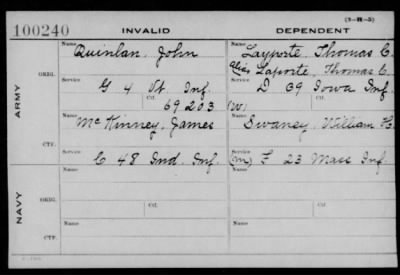 (3-H-5)
100240 INVALID DEPENDENT
Name Quinlan, John Name Layporte, Thomas C.
ORIG. alias Laporte, Thomas C.
ARMY
Service G 4 Vt. Inf. Service D 39 Iowa Inf.
Ctf. 69203 Ctf. (W)
Name McKinney, James Name Swaney, William H.
CTF.
Service C 48 Ind. Inf. Service (M) F 23 Mass Inf.
Name Name
NAVY
ORIG. Ctf. Ctf.
Name Name
CTF.